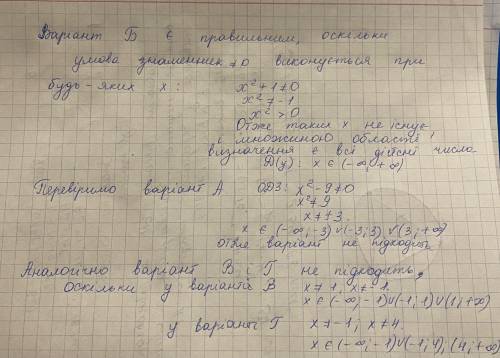 Варіант Б є правильним, оскільки
умова знаменник ≠ 0 виконується при
будь-яких x: x² + 1 ≠ 0
x² ≠ -1
x² > 0
Отже таких x не існує,
множиною області
визначення є всі дійсні числа
D(y): x ∈ (-∞; +∞)
Перевіримо варіант А ОДЗ: x² - 9 ≠ 0
x² ≠ 9
x ≠ ±3.
x ∈ (-∞; -3) ∨ (-3; 3) ∨ (3; +∞)
Отже варіант не підходить
Аналогічно варіант В і Г не підходить,
оскільки у варіанті В x ≠ 1, x ≠ -1.
x ∈ (-∞; -1) ∨ (-1; 1) ∨ (1; +∞)
у варіанті Г x ≠ -1; x ≠ 4.
x ∈ (-∞; -1) ∨ (-1; 4); (4; +∞)